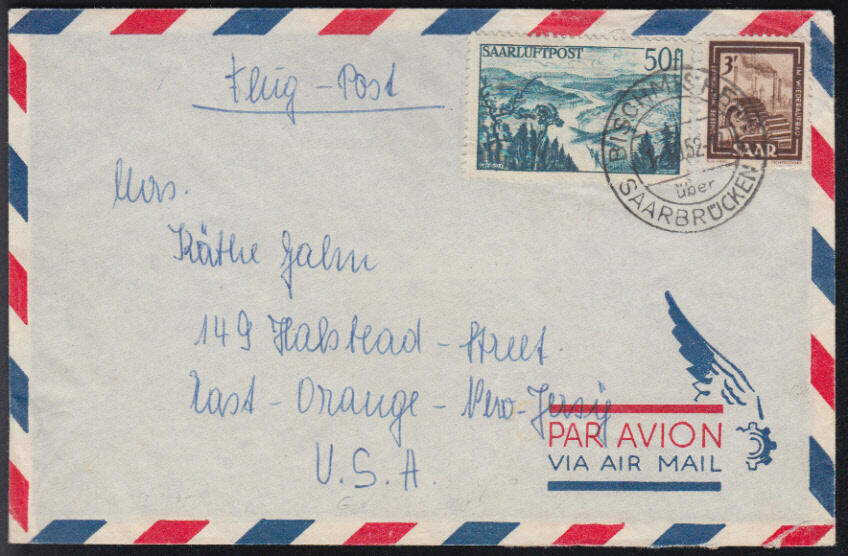 Flug-Post
SAARLUFTPOST 50f
3F
IM WIEDERAUFBAU
SAAR
BISCHMISHEIM
52
über
SAARBRÜCKEN
Mrs.
Käthe Jahn
149 Halstead-Street
East-Orange-New-Jersy
U.S.A.
PAR AVION
VIA AIR MAIL